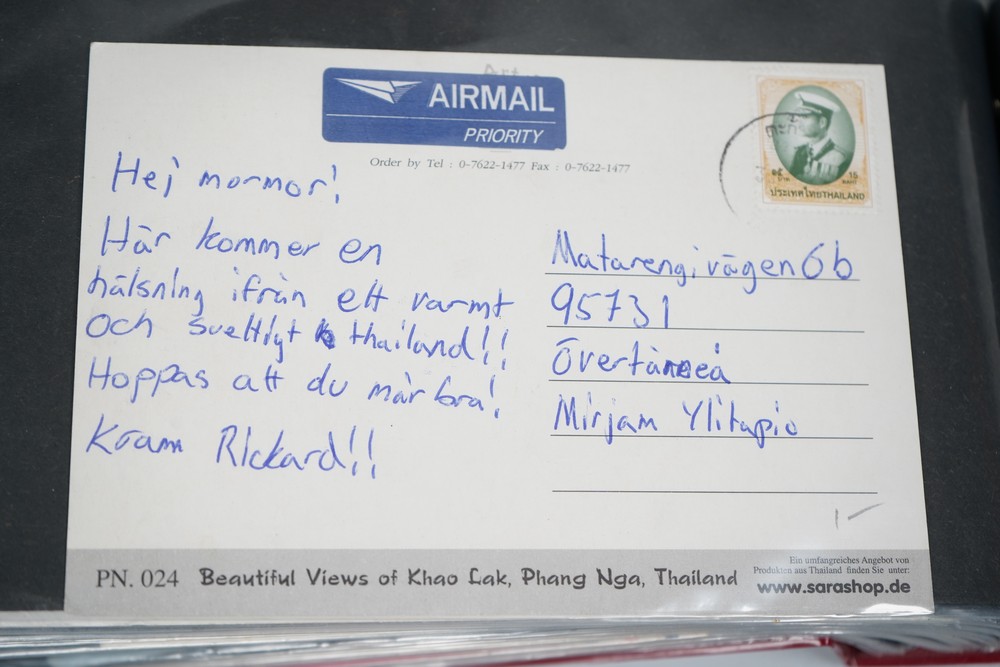 AIRMAIL
PRIORITY
Order by Tel : 0-7622-1477 Fax : 0-7622-1477
15
ประเทศไทยTHAILAND
Hej mormor!
Här kommer en
hälsning ifrån ett varmt
och svettigt thailand!!
Hoppas att du mår bra!
Kram Rickard!!
Matarengivägen 6b
95731
Övertårneå
Mirjam Ylitapio
PN. 024 Beautiful Views of Khao Lak, Phang Nga, Thailand
Ein umfangreiches Angebot von
Produkten aus Thailand finden Sie unter:
www.sarashop.de